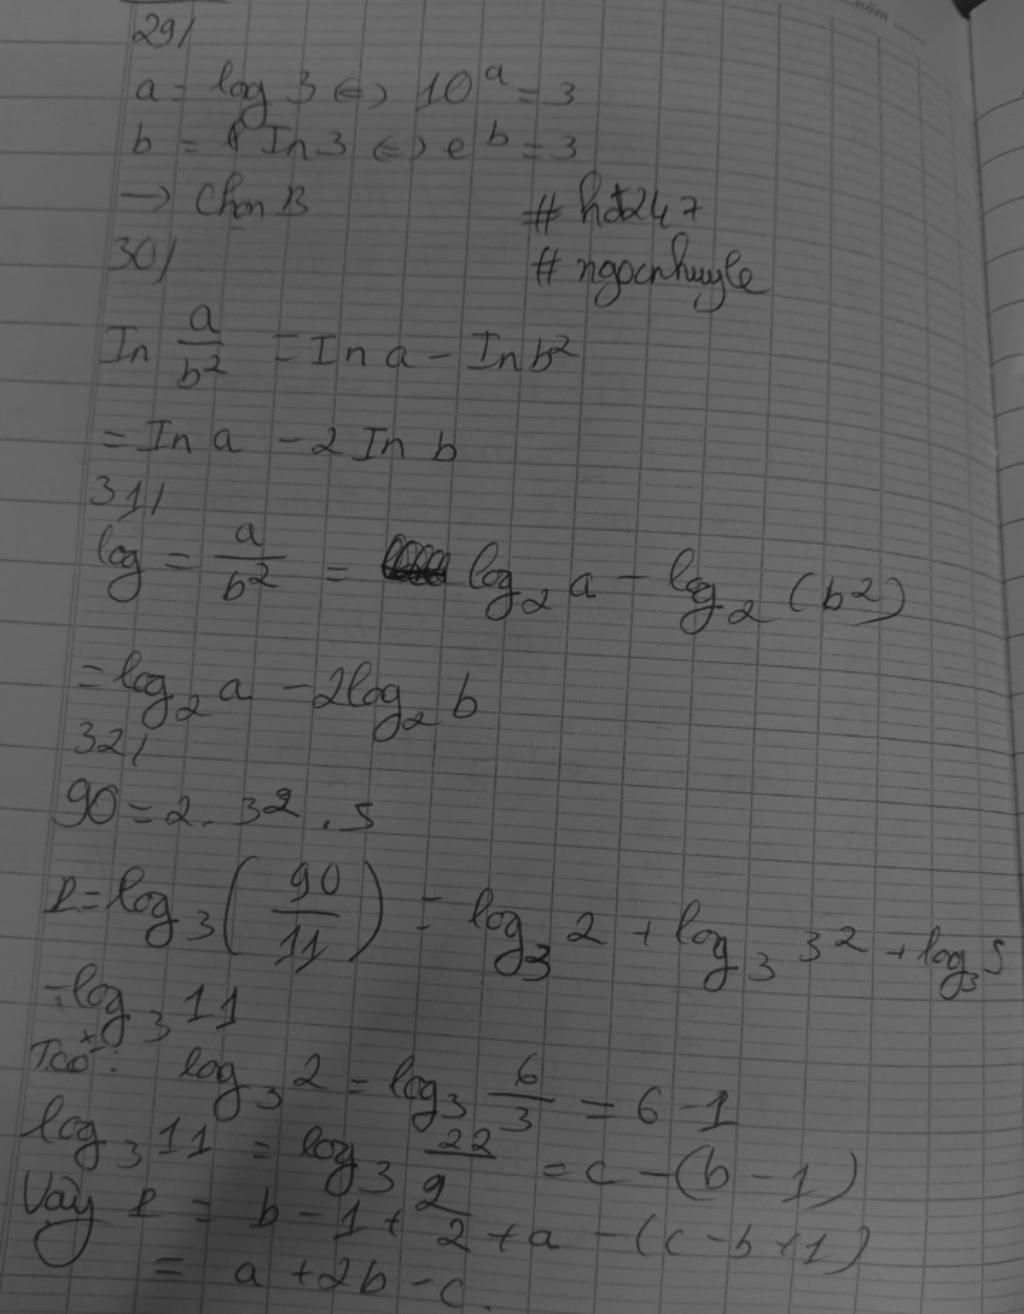 29/
a = log 3 <=> 10^a = 3
b = In 3 <=> e^b = 3
→ Chọn B
# hđ247
30/
# ngocnhuyle
In a/b² = In a - In b²
= In a - 2 In b
31/
log = a/b² = log₂ a - log₂ (b²)
= log₂ a - 2log₂ b
32/
90 = 2 . 3² . 5
P = log₃ (90/11) = log₃ 2 + log₃ 3² + log₃ 5
- log₃ 11
Ta có: log₃ 2 = log₃ 6/3 = 6 - 1
log₃ 11 = log₃ 22/2 = c - (b - 1)
Vậy P = b - 1 + 2 + a - (c - b + 1)
= a + 2b - c.